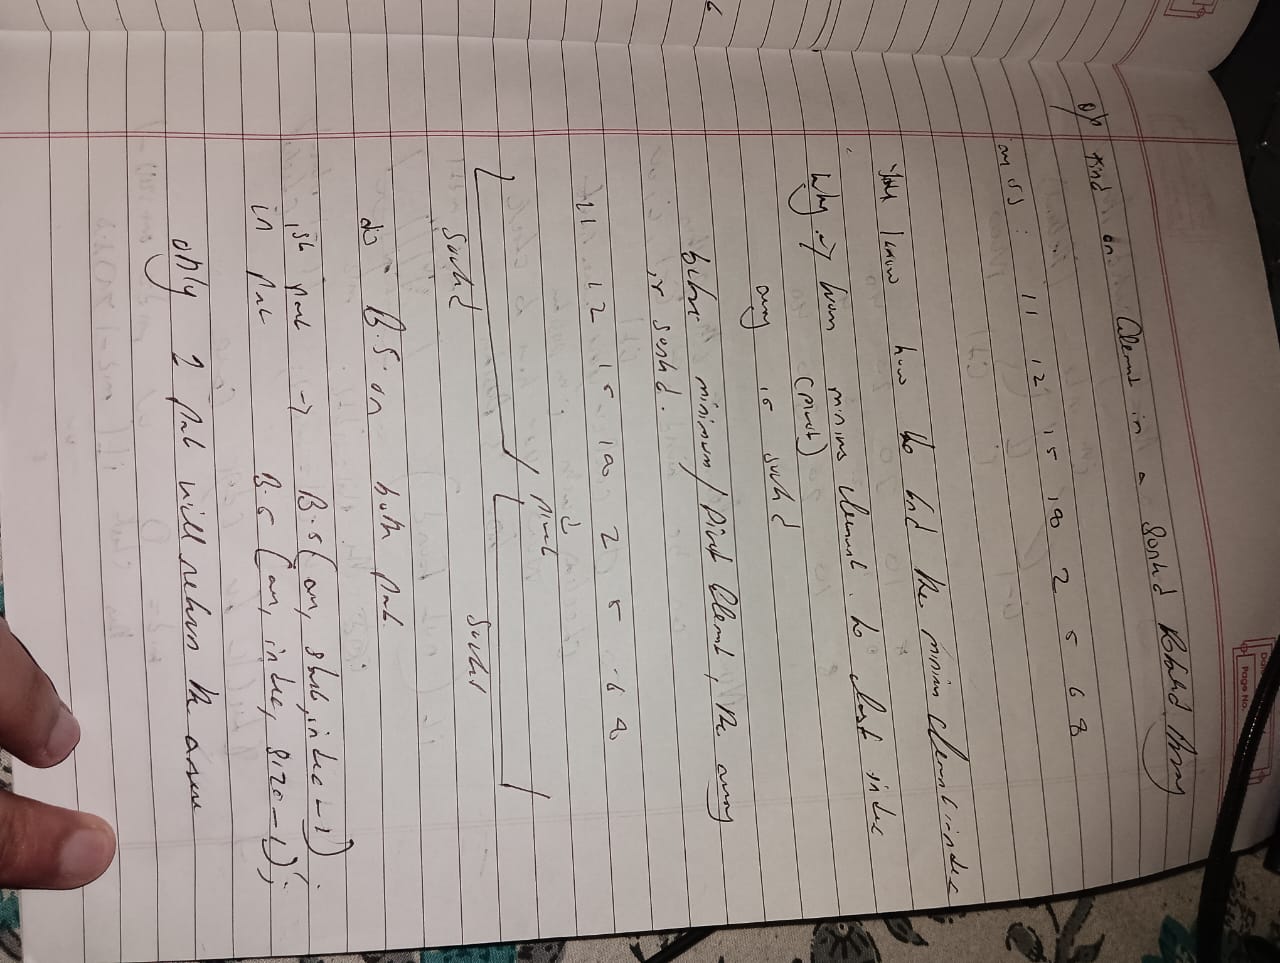 Page No.
Q/n Find an Element in a Sorted Rotated Array
arr is : 11 12 15 18 2 5 6 8
You know how to find the minimum element index
Why → from minimum element to last index
(pivot)
array is sorted
before minimum/pivot element, the array
is sorted.
11 12 15 18 2 5 6 8
pivot
sorted sorted
do B.S on both part
1st part → B.S(arr, start, index-1);
in part B.S(arr, index, size-1);
only 1 part will return the answer